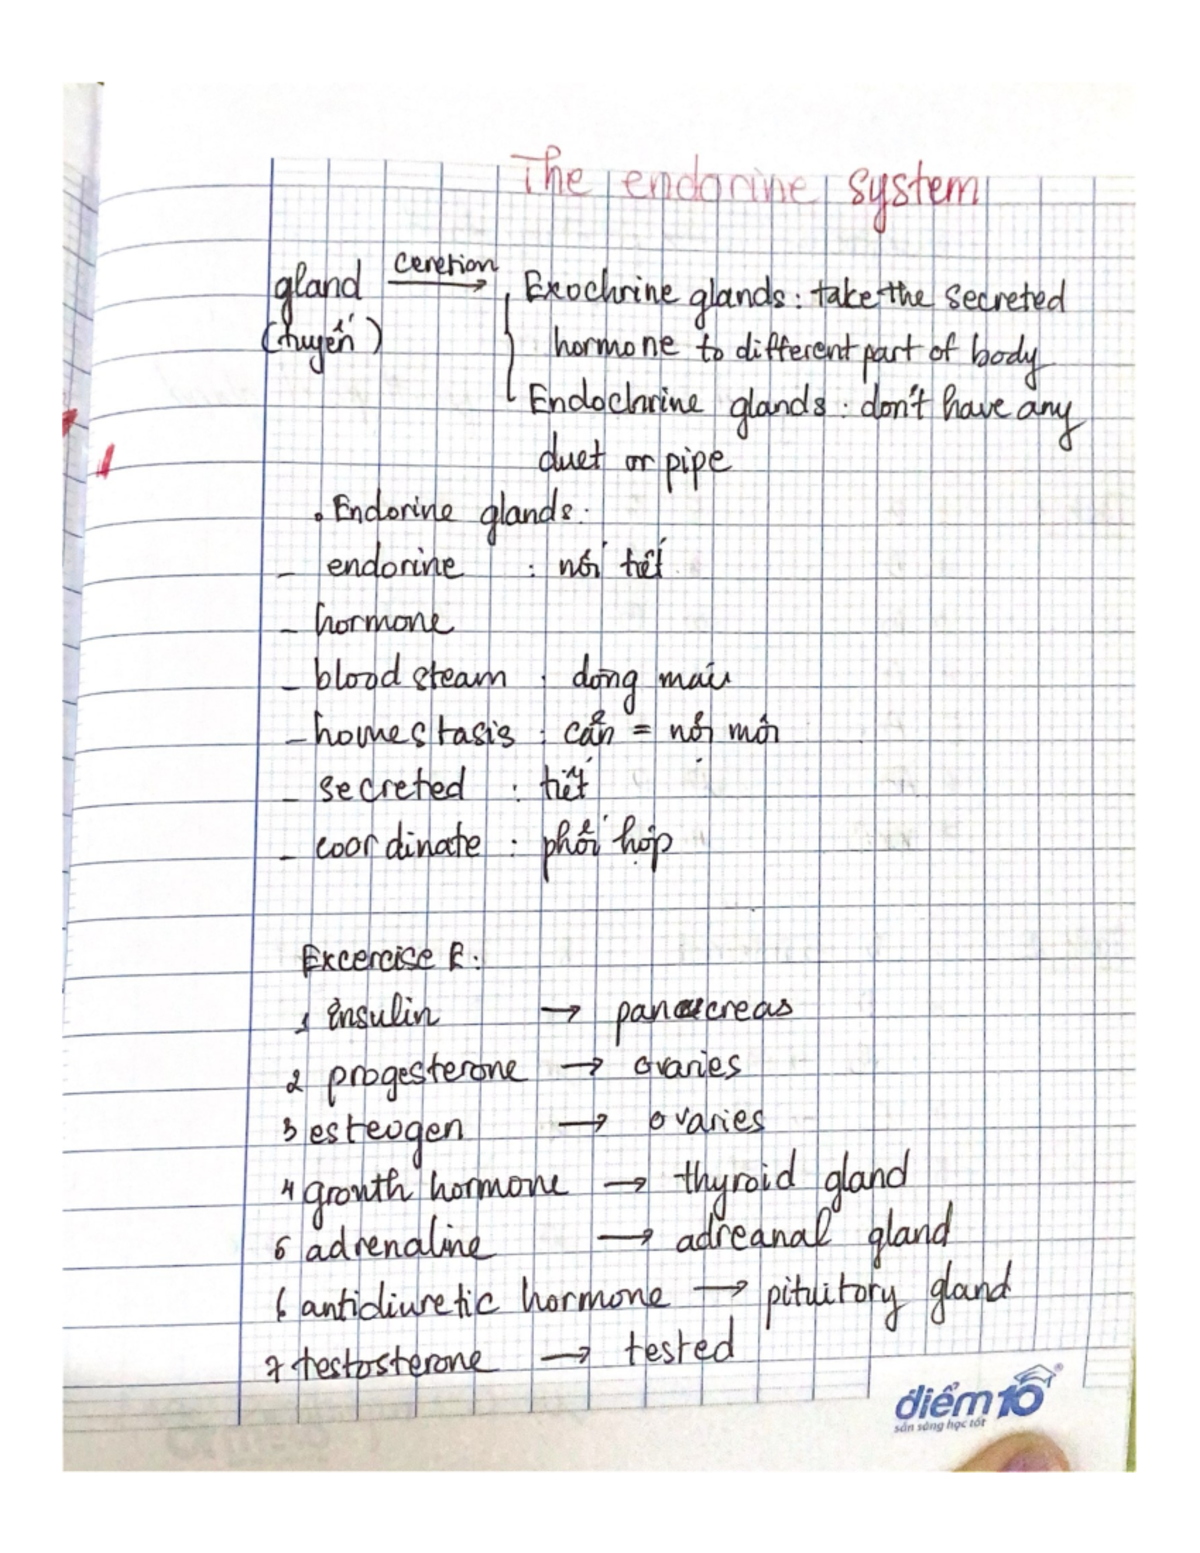 The endorine system
gland ceretion Exochrine glands: take the secreted
(tuyến) hormone to different part of body
Endochrine glands: don't have any
duet or pipe
. Endorine glands:
- endorine : nội tiết
- hormone
- blood steam : dòng máu
- homestasis : cân = nội môi
- secreted : tiết
- coordinate : phối hợp
Excercise E:
1 insulin → pancreas
2 progesterone → ovaries
3 esteogen → ovaries
4 growth hormone → thyroid gland
5 adrenaline → adreanal gland
6 antidiuretic hormone → pituitory gland
7 testosterone → tested
điểm 10
sẵn sàng học tốt